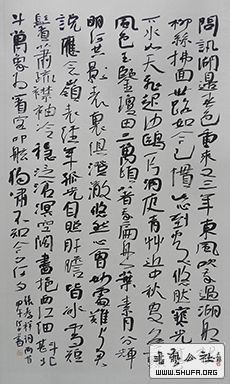 問訊湖邊春色重來又是三年東風吹我過湖船楊
柳絲絲拂面世路如今已慣此心到處悠然寒光亭
下水如天飛起沙鷗一片洞庭青草近中秋更無一點
風色玉鑒瓊田三萬頃著我扁舟一葉素月分輝
明河共影表裏俱澄澈悠然心會妙處難與君
說應念嶺表經年孤光自照肝膽皆冰雪短
髮蕭疏襟袖冷穩泛滄溟空闊盡挹西江細斟北
斗萬象為賓客叩舷獨嘯不知今夕何夕
張孝祥詞兩首
WWW.SHUFA.ORG